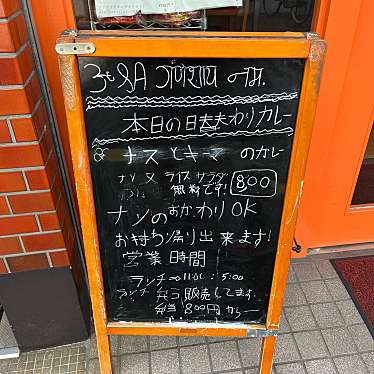 本日の日替わりカレー
ナスとキーマのカレー
ナン ライス サラダ
無料です! 800
ナンのおかわりOK
お持ち帰り出来ます!
営業時間
ランチ 11:00 5:00
ランチ 弁当販売してます.
弁当 800円 カレー